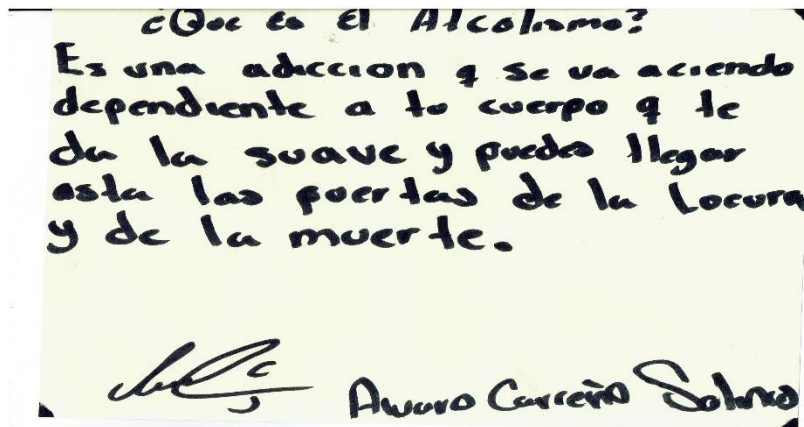 ¿Que es El Alcolismo?
Es una adiccion q se va aciendo
dependiente a tu cuerpo q te
da la suave y puedes llegar
asta las puertas de la Locura
y de la muerte.
Carreño